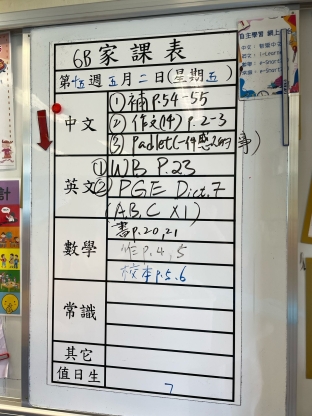 6B 家課表
第十五週 五月二日(星期五)
中文
① 補 P.54-55
② 作文(什) P.2-3
③ Padlet(一件感人的事)
英文
① WB P.23
② PGE Dict.7
(A.B.C X1)
數學
書 p.20,21
作 p.4,5
校本 p.5,6
常識
其它
值日生
7
自主學習 網上